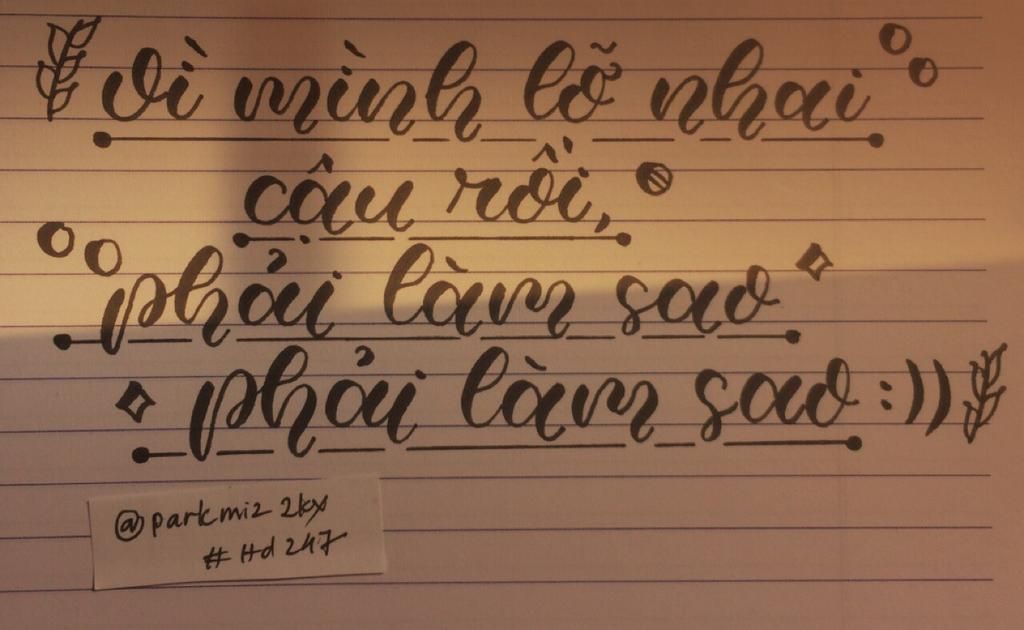 Vì mình lỡ nhai
câu rồi,
phải làm sao
phải làm sao :))
@parkmiz 2kx
#Hd247